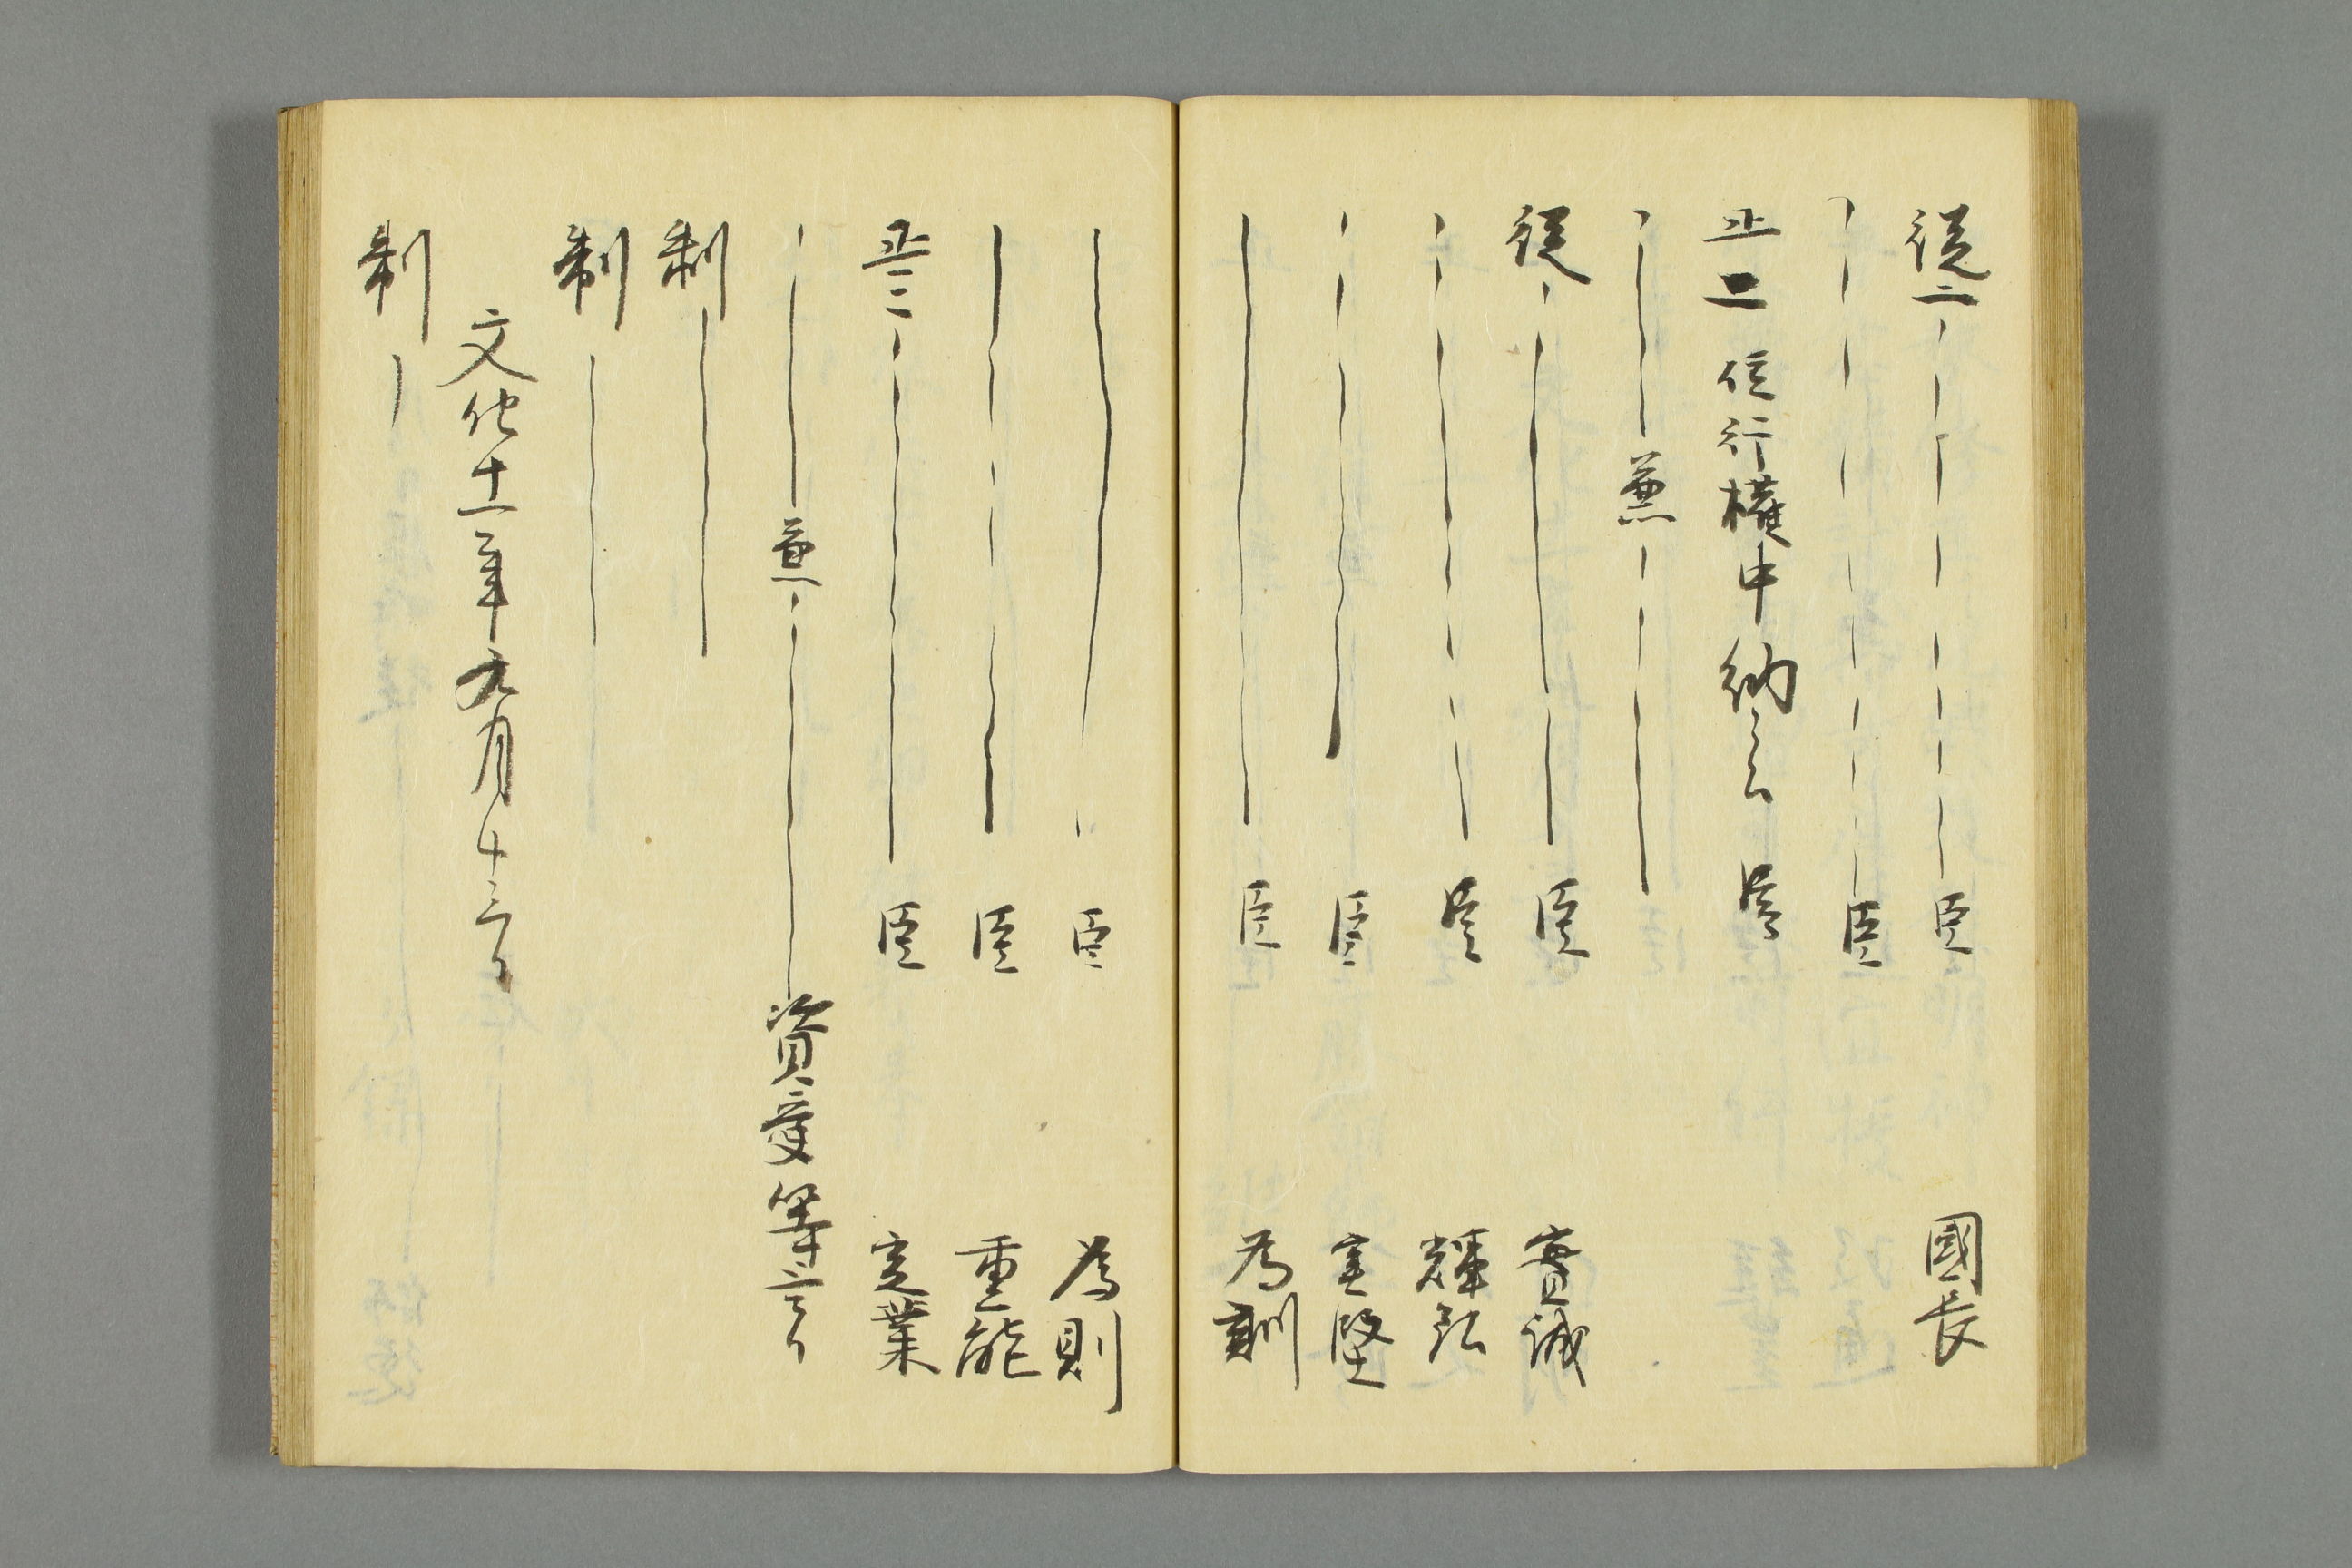 従二 臣 國長
臣
正二位行権中納言臣
兼
従 臣 實誠
臣 輝弘
臣 実堅
臣 為訓
臣 為則
臣 重能
正三 臣 定業
兼 資愛等言
制
制
文化十一年九月十三日
制